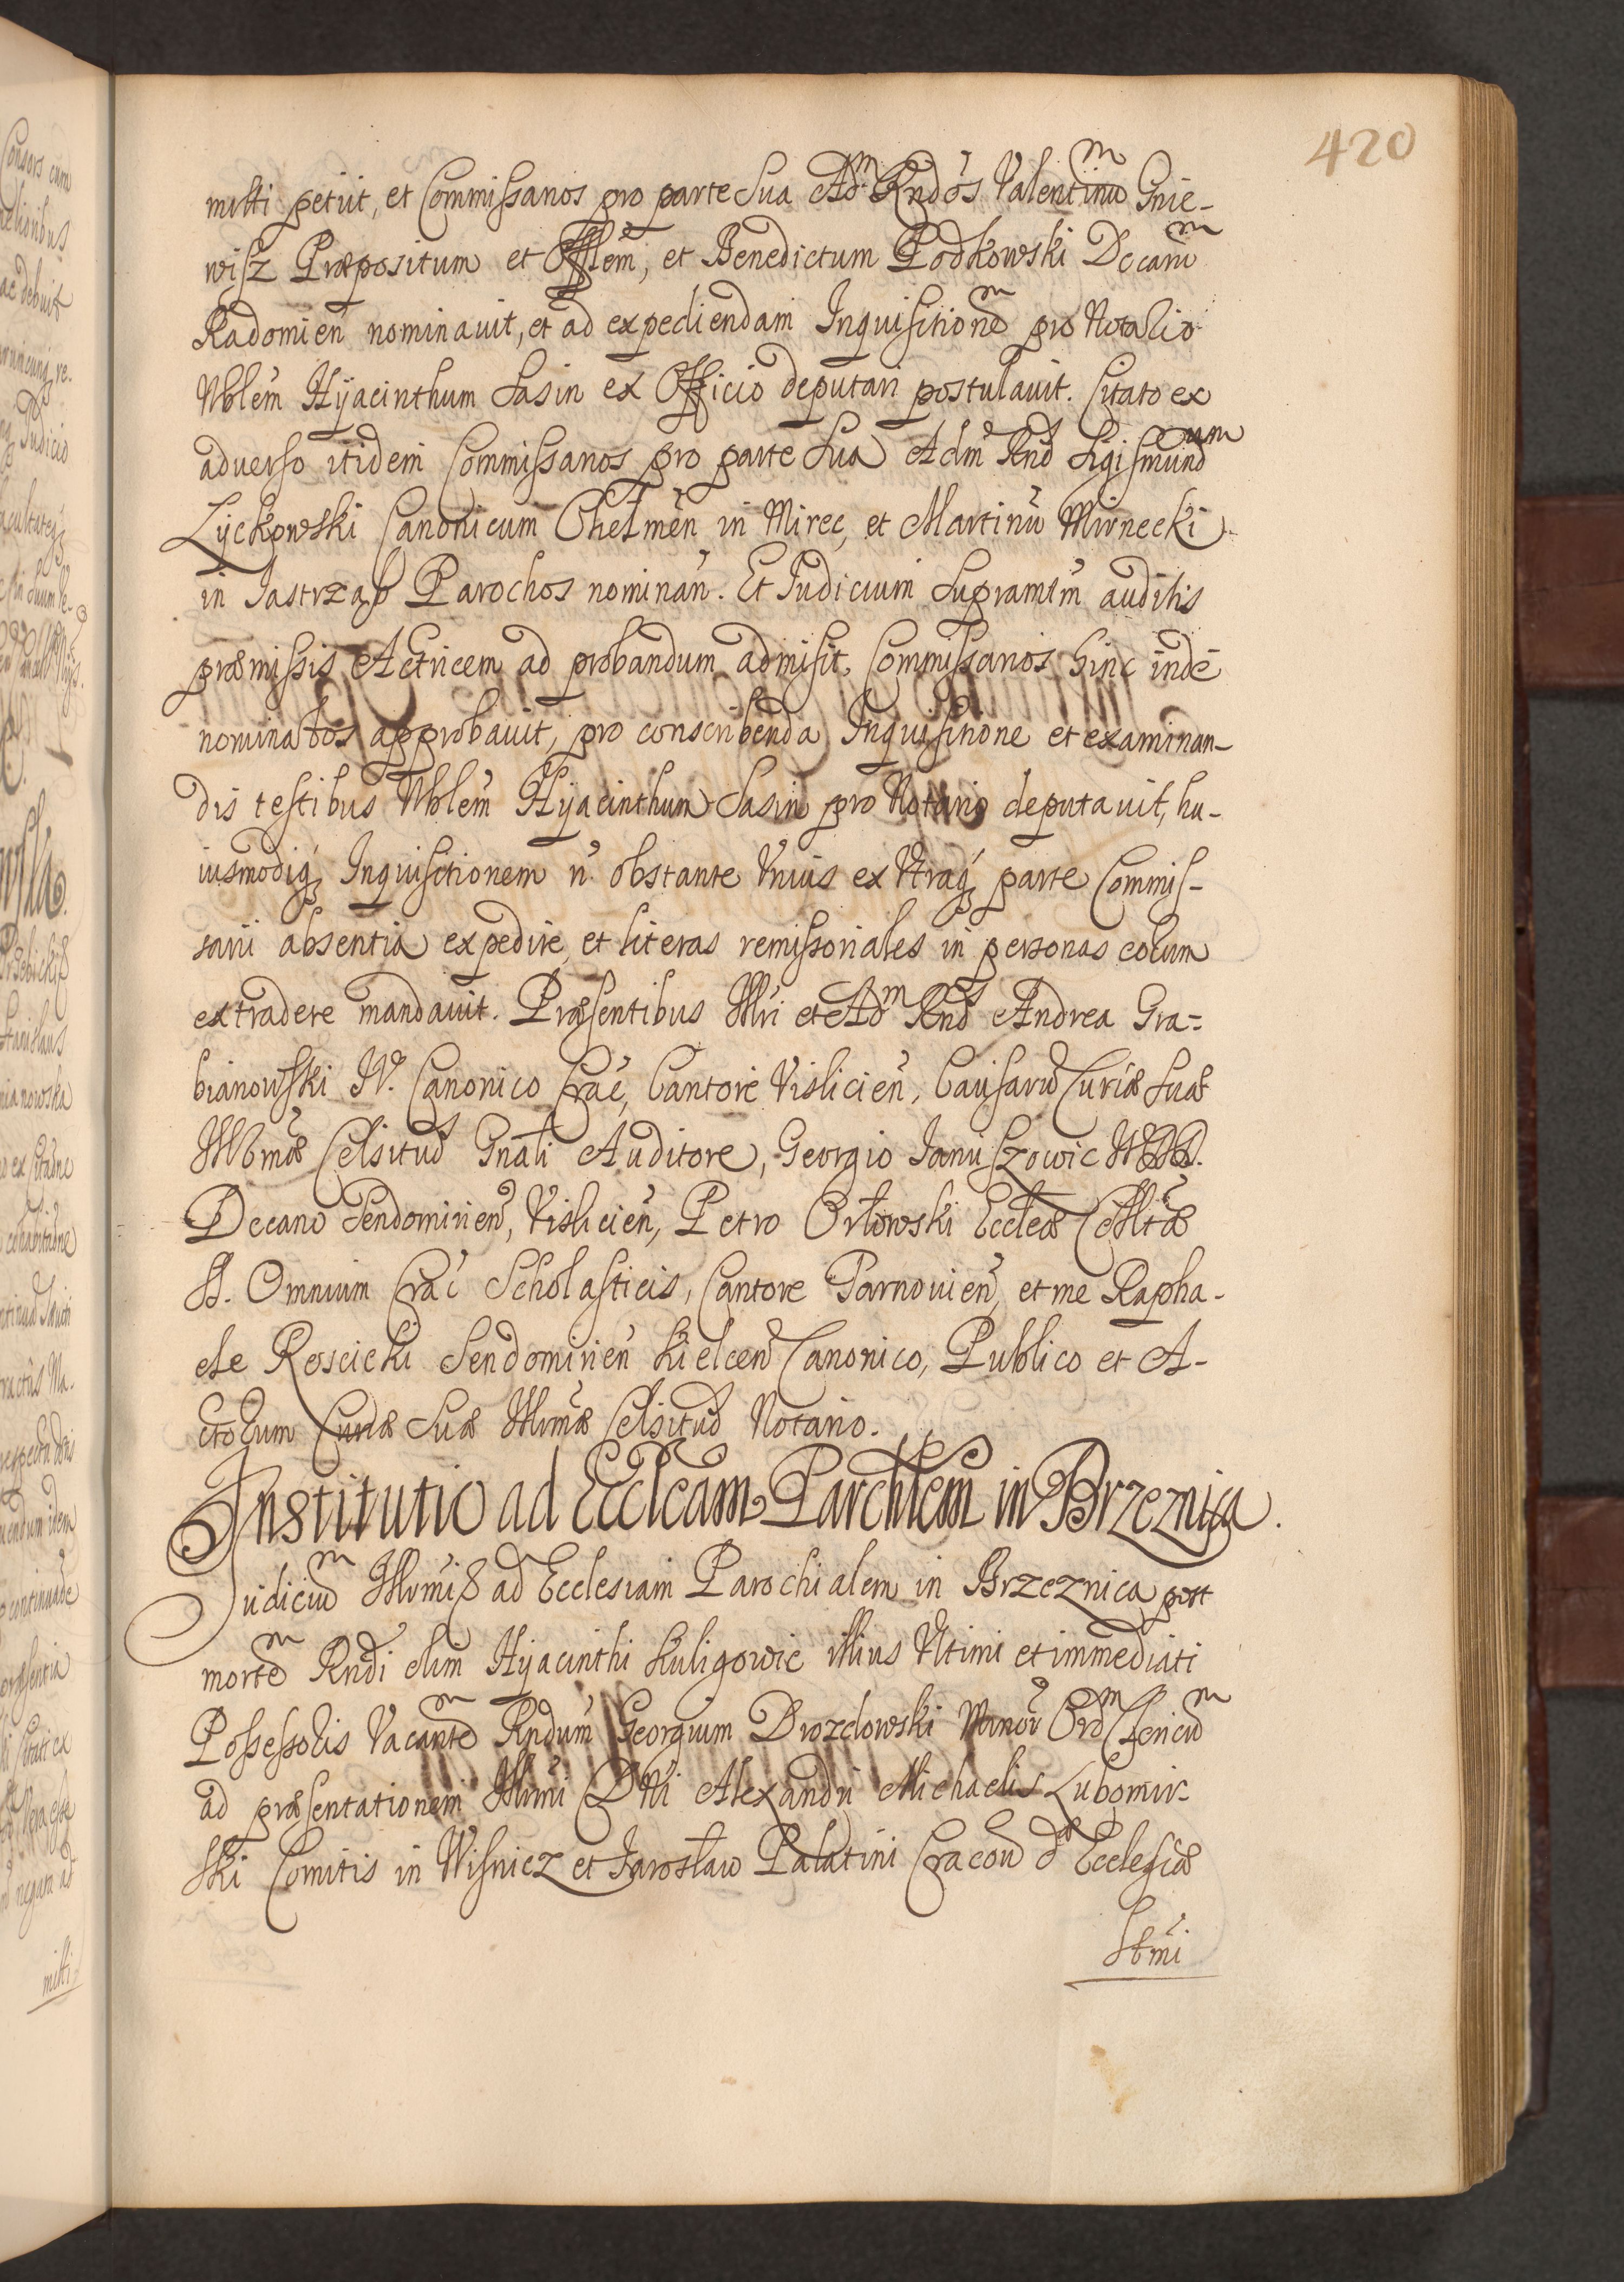 420
mitti petiit, et Commissarios pro parte sua Adm Rndos Valentinum Gnie-
wisz Præpositum et Offlem, et Benedictum Podkowski Decanum
Radomien nominavit, et ad expediendam Inquisitionem pro Notario
Nblem Hyacinthum Sasin ex Officio deputari postulavit. Citato ex
adverso itidem Commissarios pro parte sua Adm Rnd Sigismundum
Zyckowski Canonicum Chelmen in Mirec, et Martinum Mirnecki
in Jastrząb Parochos nominan. Et Judicium supramtm auditis
præmissis Actricem ad probandum admisit, Commissarios hinc inde
nominatos approbavit, pro conscribenda Inquisitione et examinan-
dis testibus Nblem Hyacinthum Sasin pro Notario deputavit, hu-
iusmodiq Inquisitionem n. obstante Unius ex Utraq parte Commis-
sarii absentia expedire, et literas remissoriales in personas eorum
extradere mandavit. Præsentibus Illri et Adm Rnds Andrea Gra-
bianowski IV. Canonico Crac, Cantore Vislicien, Causarum Curiæ suæ
Illmæ Celsituds Gnali Auditore, Georgio Januszowic
Decano Sendomirien, Vislicien, Petro Orłowski Eccleæ Colltæ
SS. Omnium Crac Scholasticis, Cantore Tarnovien, et me Rapha-
ele Roscicki Sendomirien Kielcen Canonico, Publico et A-
ctorum Curiæ suæ Illmæ Celsitud Notario.
Institutio ad Eccleam Parchlem in Brzeznica.
Judicium Illrmi ad Ecclesiam Parochialem in Brzeznica post
mortem Rndi olim Hyacinthi Kuligowic illius Ultimi et immediati
Possessoris Vacantem Rndum Georgium Drozdowski Minor Ordm Clericum
ad præsentationem Illrmi Dni Alexandri Michaelis Lubomir-
ski Comitis in Wisnicz et Jarosław Palatini Cracov dæ Ecclesiæ